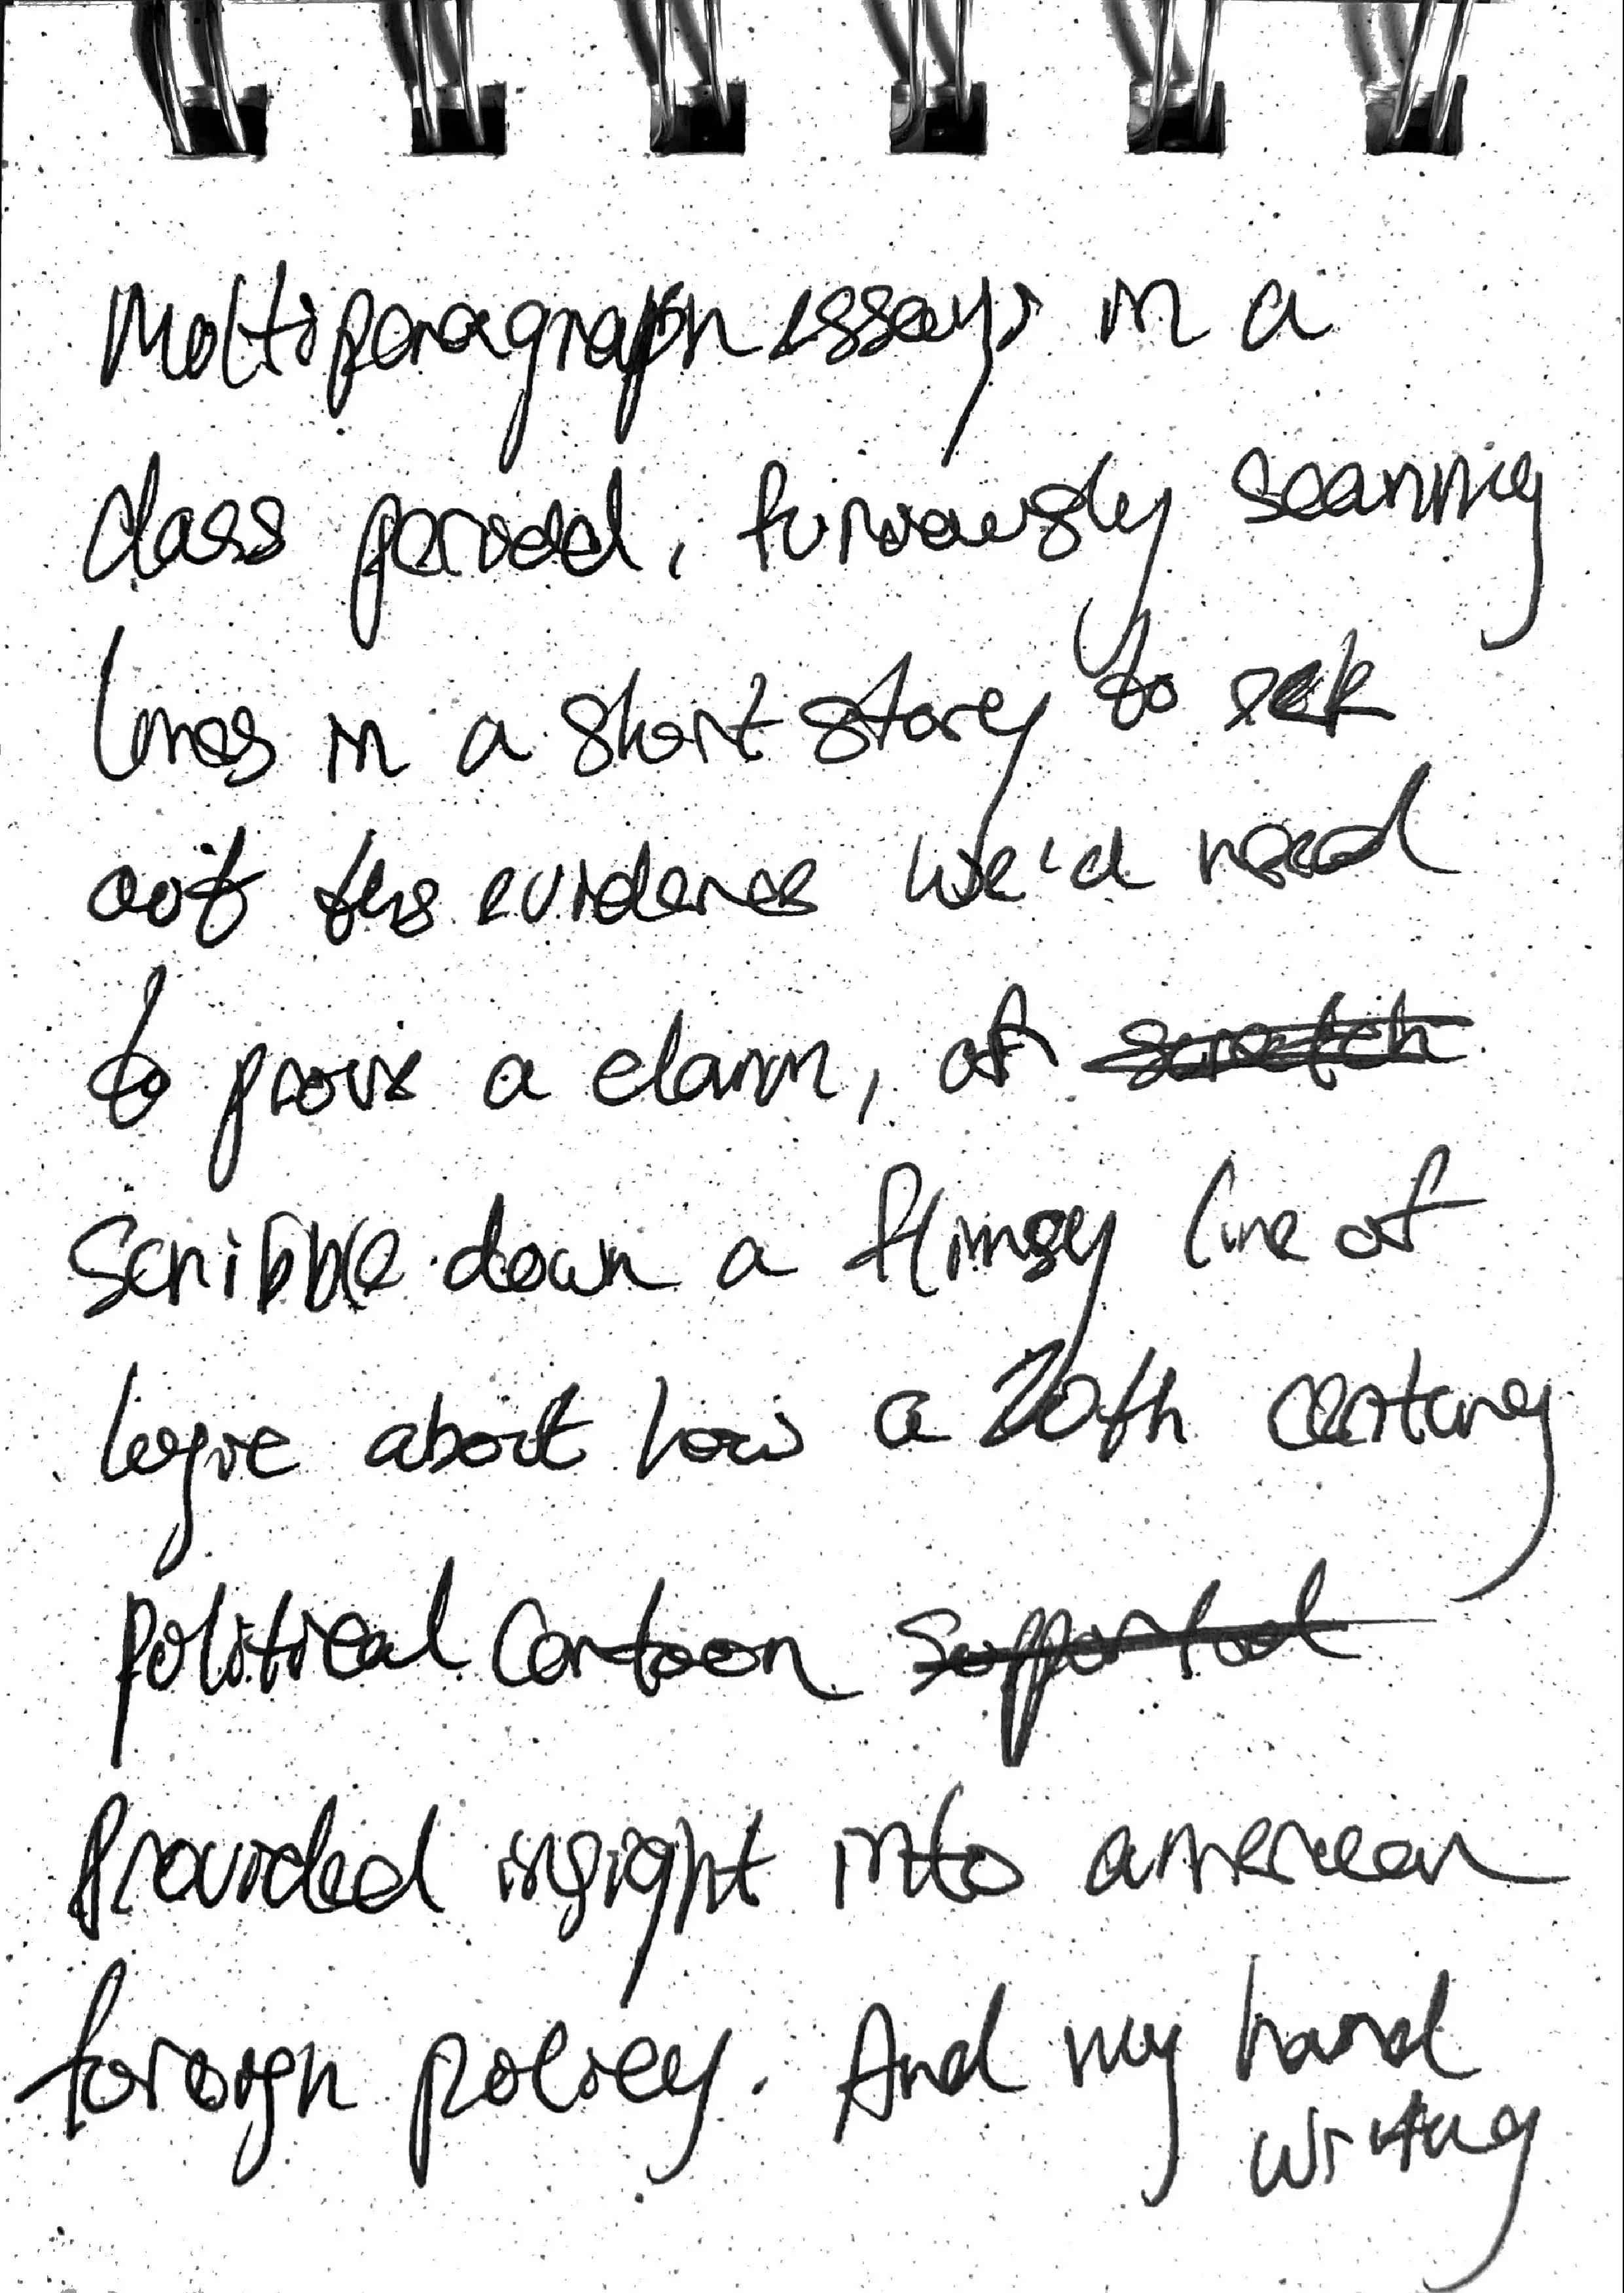 Multiparagraph essays in a
class period, furiously scanning
lines in a short story to seek
out the evidence we'd need
to prove a claim, of scratch
scribble down a flimsy line of
logic about how a 20th century
political cartoon supported
provided insight into american
foreign policy. And my hand
writing